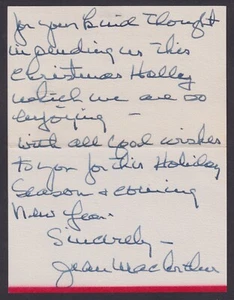 for your kind thought
in sending us this
Christmas Holly
which we are so
enjoying -
with all good wishes
to you for this Holiday
Season & coming
New Year.
Sincerely -
Jean MacArthur